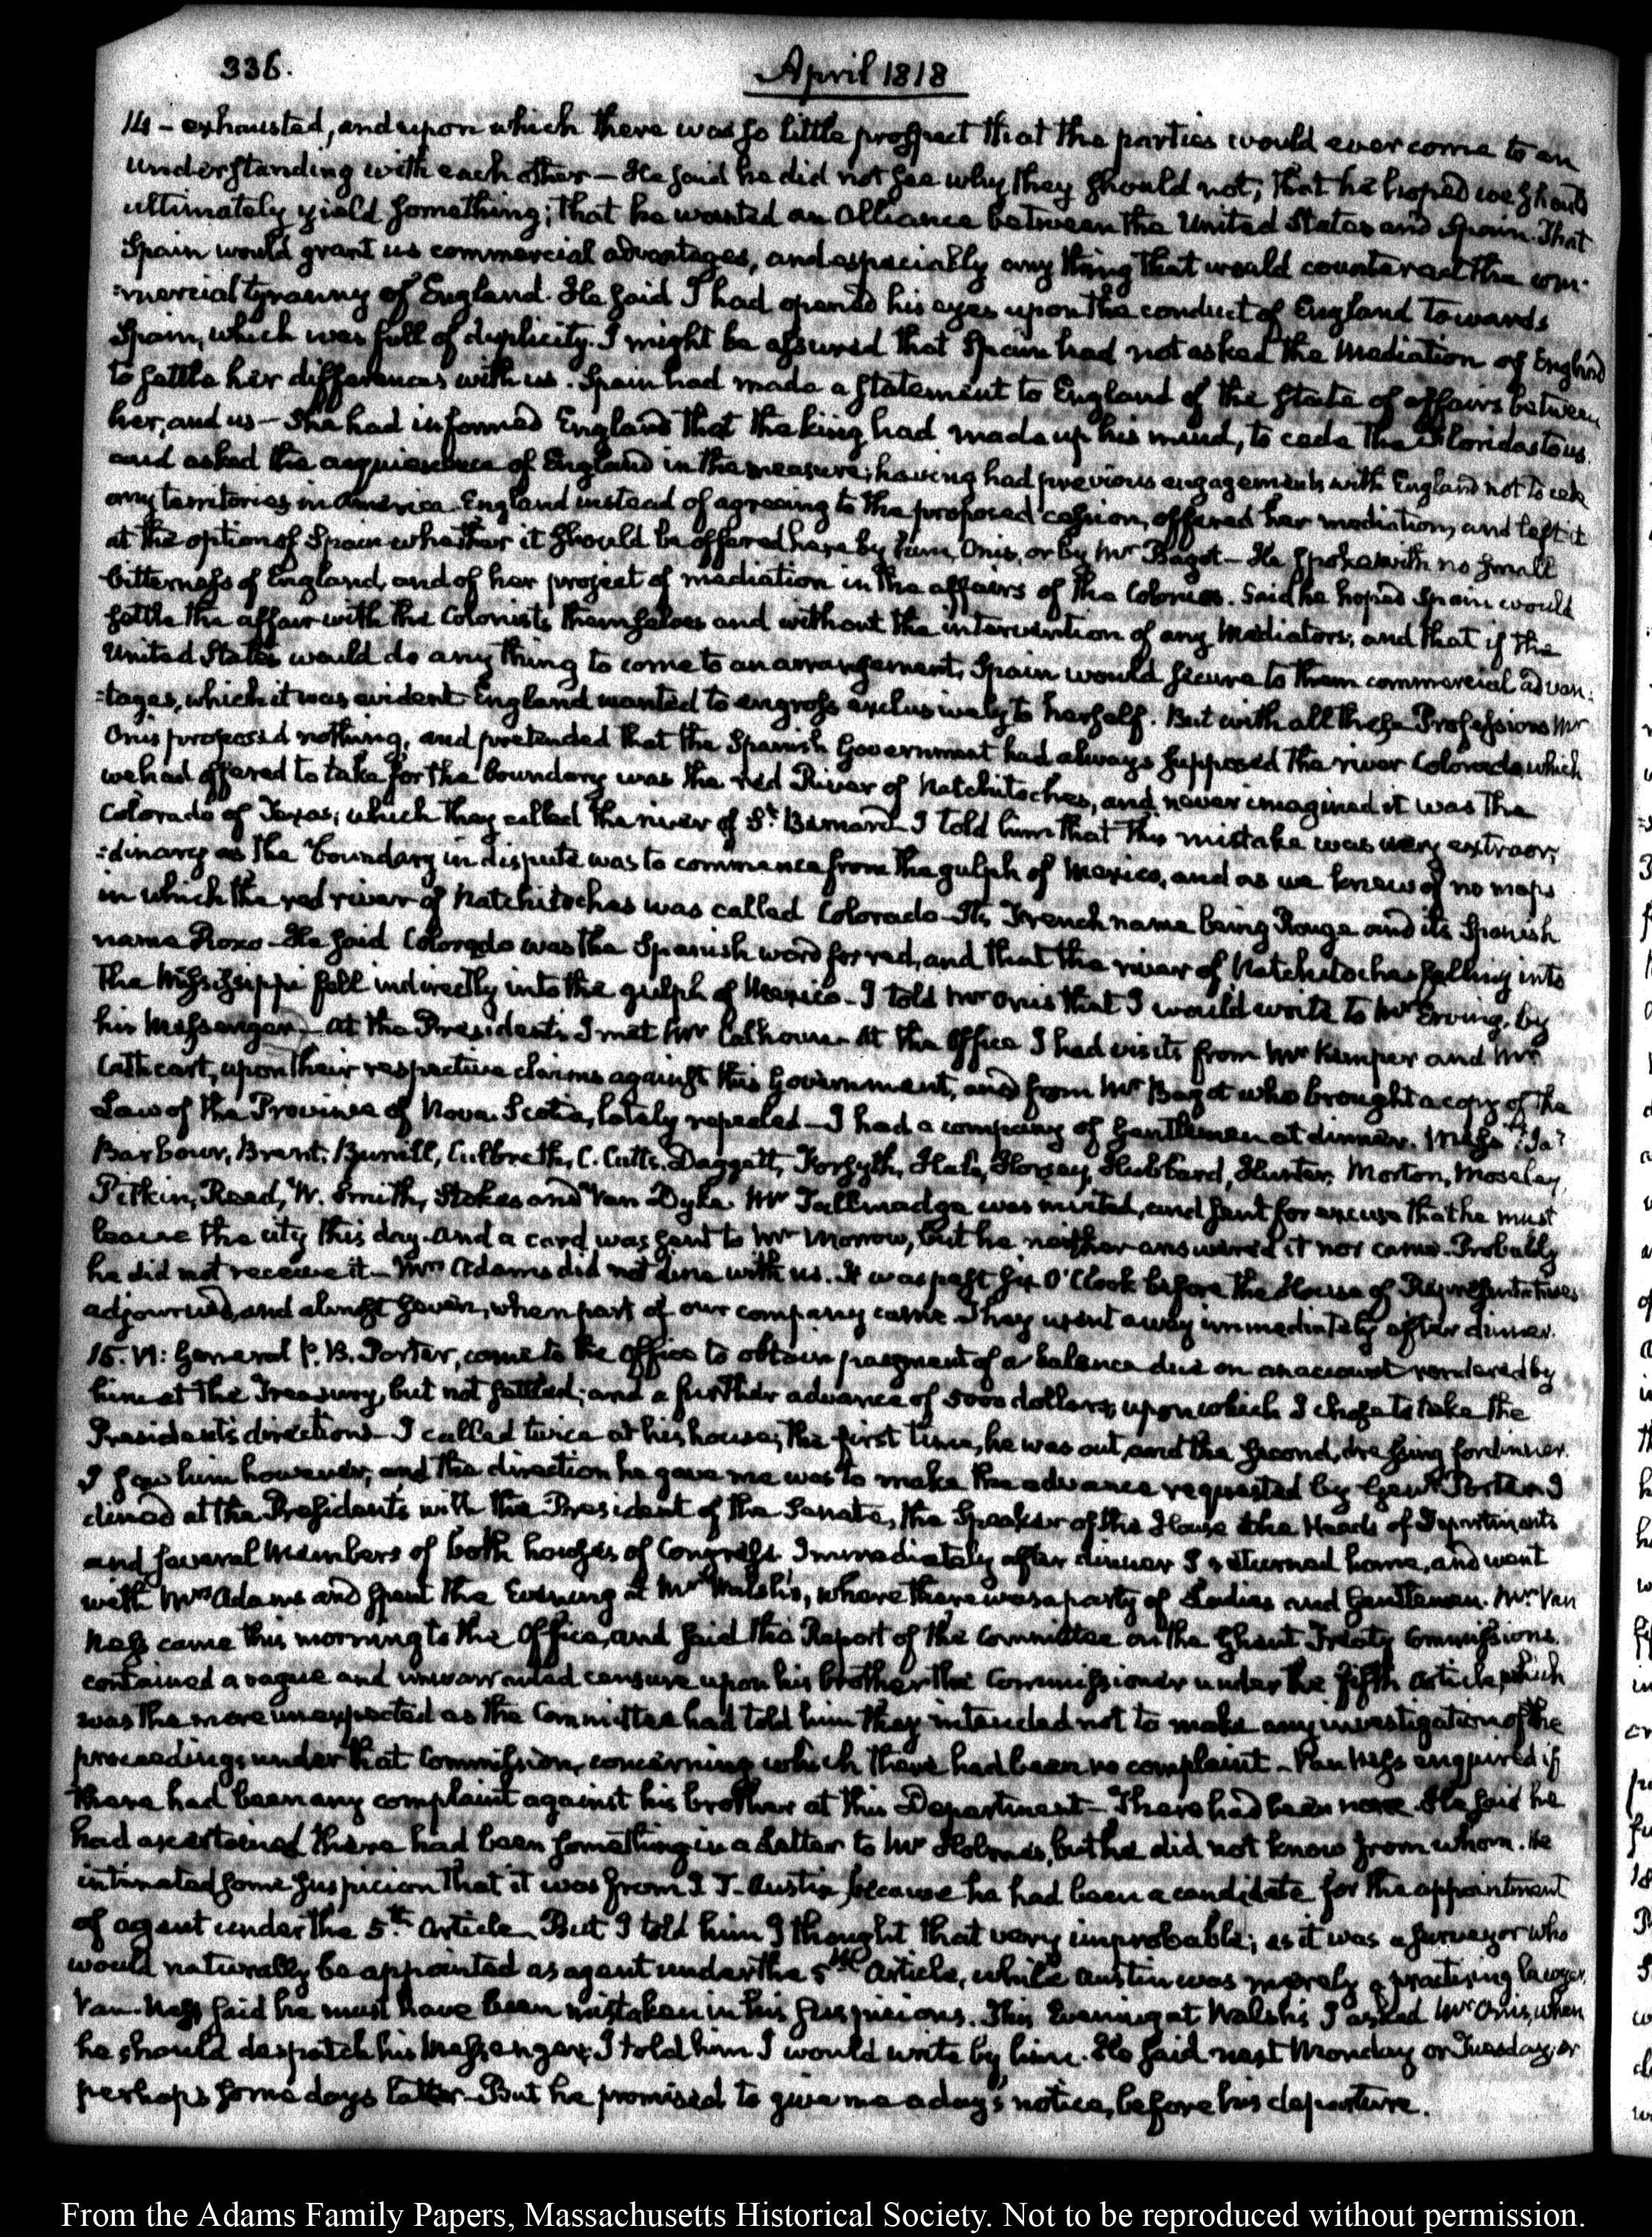 336.
April 1818
14 - exhausted, and upon which there was so little prospect that the parties would ever come to an
understanding with each other — He said he did not see why they should not; that he hoped we should
ultimately yield something; that he wanted an Alliance between the United States and Spain. That
Spain would grant us commercial advantages, and especially any thing that would counteract the com-
:mercial tyranny of England. He said I had opened his eyes upon the conduct of England towards
Spain, which was full of duplicity. I might be assured that Spain had not asked the Mediation of England
to settle her differences with us. Spain had made a statement to England of the State of affairs between
her, and us — She had informed England that the king had made up his mind, to cede the Floridas to us.
and asked the acquiescence of England in the measure; having had previous engagements with England not to cede
any territories in America. England instead of agreeing to the proposed cession, offered her mediation, and left it
at the option of Spain whether it should be offered here by him, Onis, or by Mr Bagot — He spoke with no small
bitterness of England, and of her project of mediation in the affairs of the Colonies. Said he hoped Spain would
settle the affair with the Colonists themselves and without the intervention of any Mediators; and that if the
United States would do any thing to come to an arrangement, Spain would secure to them commercial advan:
:tages, which it was evident England wanted to engross exclusively to herself. But with all these Professions Mr
Onis proposed nothing, and pretended that the Spanish Government had always supposed the river Colorado which
we had offered to take for the boundary was the red River of Natchitoches, and never imagined it was the
Colorado of Texas; which they called the river of St. Bernard — I told him that this mistake was very extraor:
:dinary as the boundary in dispute was to commence from the gulph of Mexico, and as we knew of no maps
in which the red river of Natchitoches was called Colorado — Its French name being Rouge and its Spanish
name Roxo — He said Colorado was the Spanish word for red, and that the river of Natchitoches falling into
the Mississippi fell indirectly into the gulph of Mexico — I told Mr Onis that I would write to Mr Erving, by
his Messenger — At the President's I met Mr Calhoun. At the Office I had visits from Mr Kemper and Mr
Cathcart, upon their respective claims against this Government, and from Mr Bagot who brought a copy of the
Law of the Province of Nova-Scotia, lately repealed — I had a company of Gentlemen at dinner. Messrs. Jas.
Barbour, Brent, Burrill, Culbreth, C. Cutts, Daggett, Forsyth, Hale, Horsey, Hubbard, Hunter, Morton, Moseley,
Pitkin, Reed, W. Smith, Stokes and Van Dyke. Mr Tallmadge was invited, and sent for excuse that he must
leave the city this day. And a card was sent to Mr Morrow, but he neither answered it nor came. Probably
he did not receive it — Mrs Adams did not dine with us. It was past six O'Clock before the House of Representatives
adjourned, and almost seven, when part of our company came. They went away immediately after dinner.
15. VI: General P. B. Porter, came to the Office to obtain payment of a balance due on an account rendered by
him at the Treasury, but not settled; and a further advance of 5000 dollars; upon which I chose to take the
President's directions — I called twice at his house; the first time, he was out, and the second, dressing for dinner.
I saw him however, and the direction he gave me was to make the advance requested by Genl. Porter. I
dined at the President's with the President of the Senate, the Speaker of the House & the Heads of Departments
and several Members of both houses of Congress. Immediately after dinner I returned home, and went
with Mrs Adams and spent the Evening at Mr Walsh's, where there was a party of Ladies and Gentlemen. Mr. Van
Ness came this morning to the Office, and said the Report of the Committee on the Ghent Treaty Commissions
contained a vague and unwarranted censure upon his brother the Commissioner under the fifth article, which
was the more unexpected as the Committee had told him they intended not to make any investigation of the
proceedings under that Commission, concerning which there had been no complaint — Van Ness enquired if
there had been any complaint against his brother at this Department — There had been none. He said he
had ascertained there had been something in a Letter to Mr Holmes, but he did not know from whom. He
intimated some suspicion that it was from J T. Austin, because he had been a candidate for the appointment
of agent under the 5th. Article — But I told him I thought that very improbable; as it was a surveyor who
would naturally be appointed as agent under the 5th Article, while Austin was merely a practising lawyer.
Van-Ness said he must have been mistaken in his suspicions. This Evening at Walsh's I asked Mr Onis, when
he should despatch his Messenger; I told him I would write by him. He said next Monday or Tuesday, or
perhaps some days later — But he promised to give me a day's notice, before his departure.
From the Adams Family Papers, Massachusetts Historical Society. Not to be reproduced without permission.